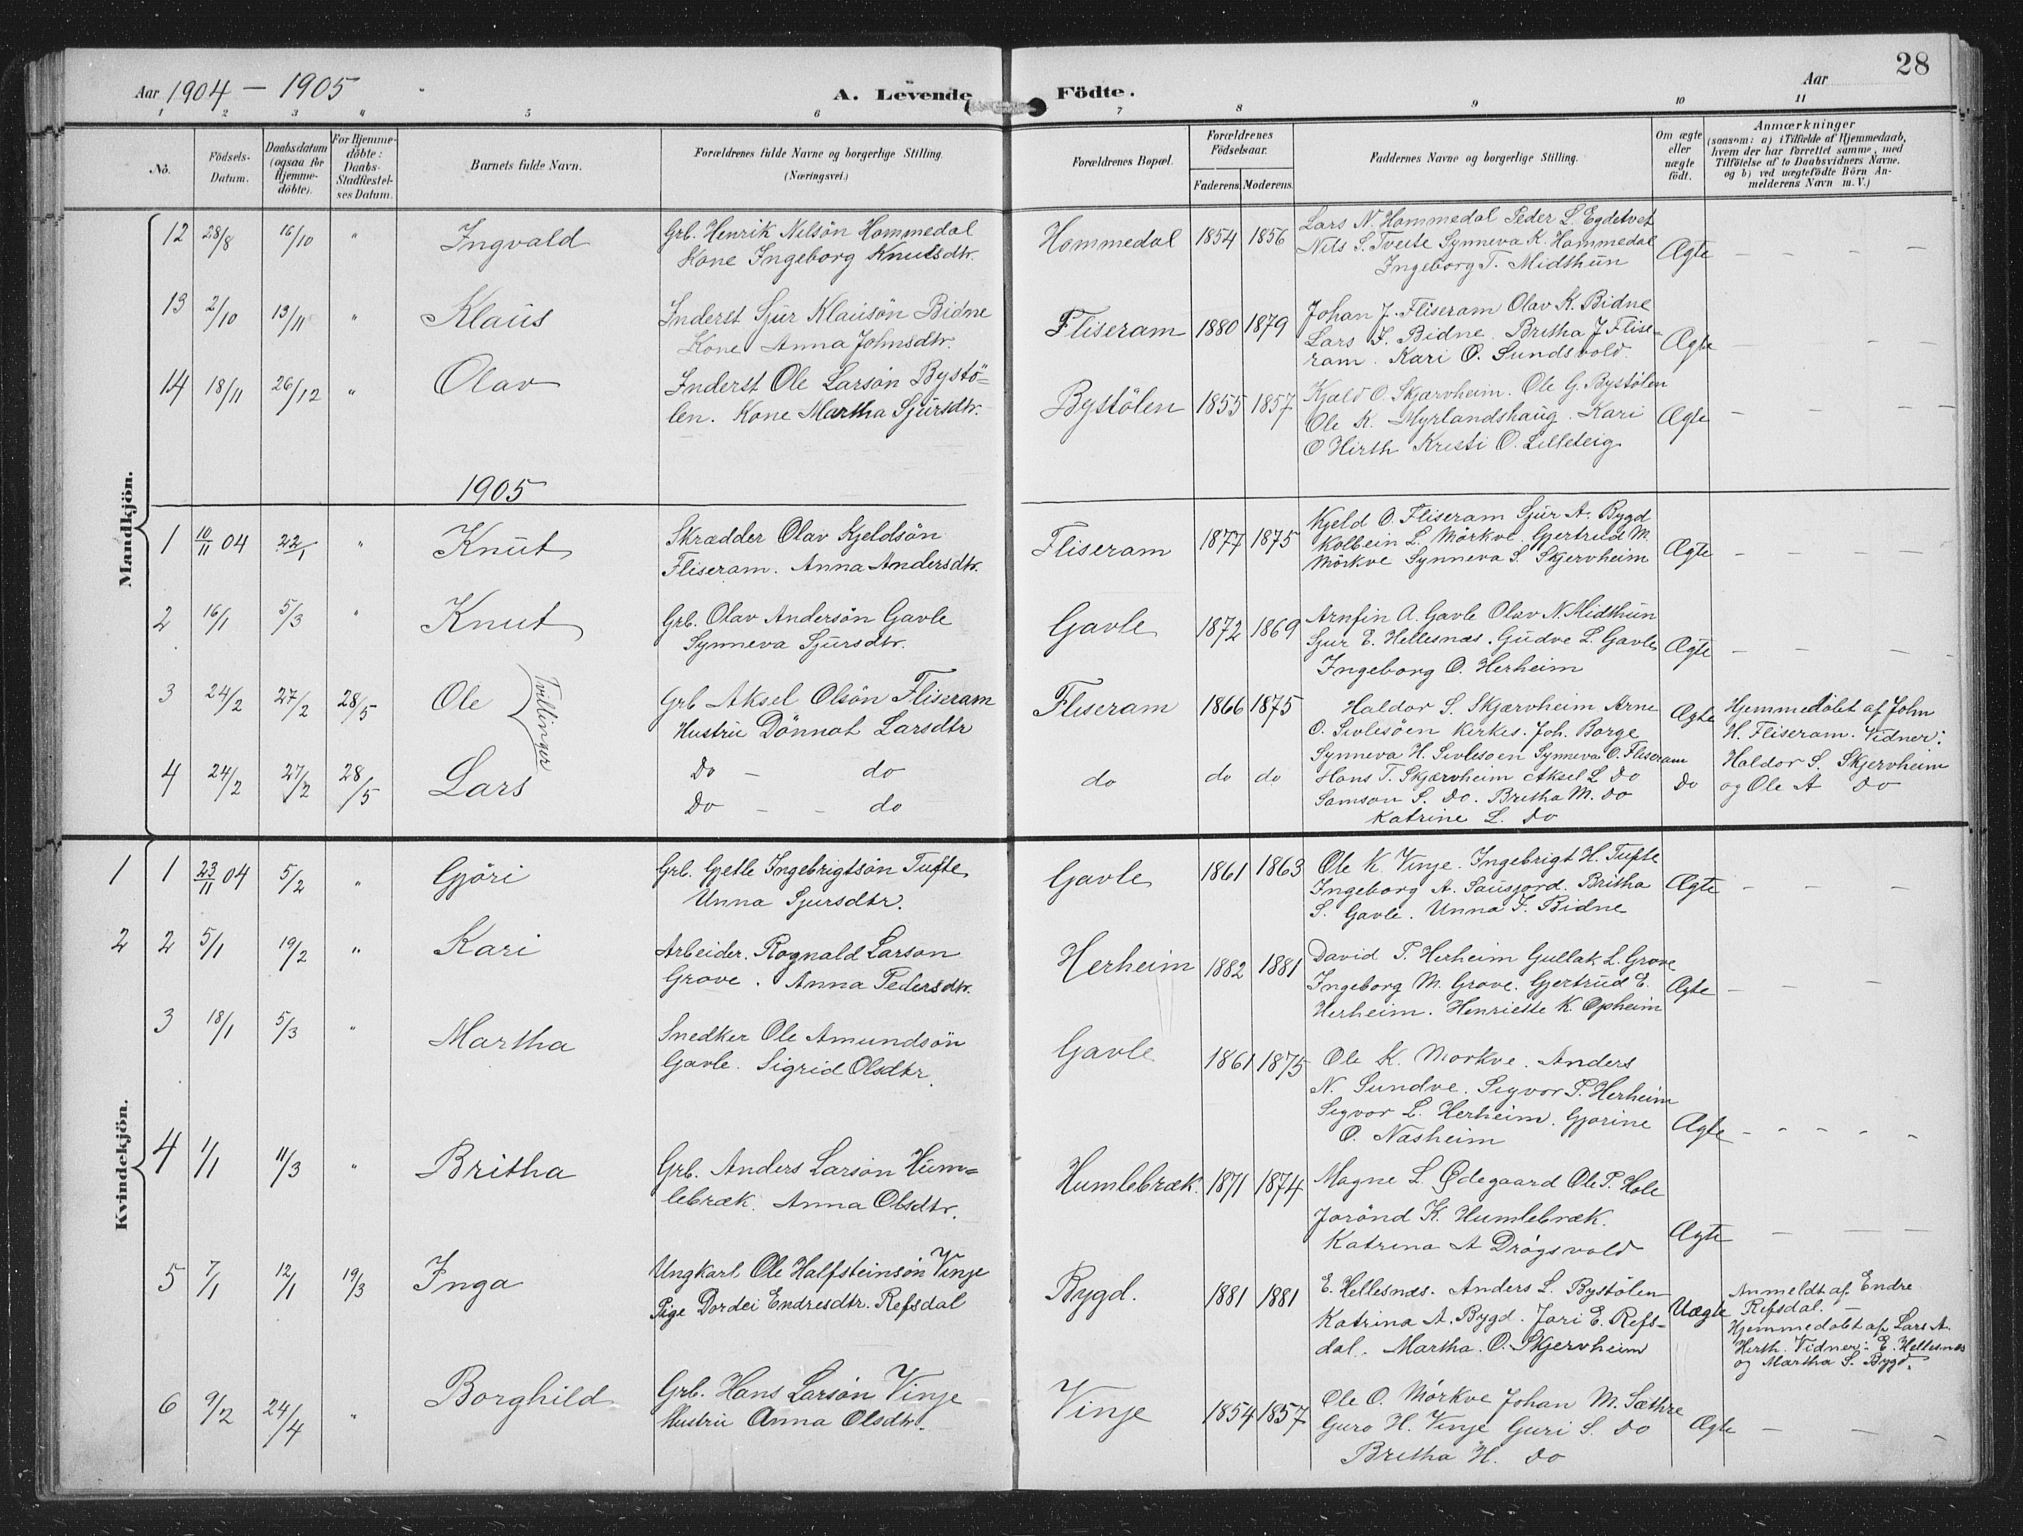 28
Aar 1904 – 1905
A. Levende Födte.
Aar
1 2 3 4 5 6 7 8 9 10 11
No.
Födsels-Datum.
Daabsdatum (ogsaa for Hjemme-döbte).
For Hjemme-döbte: Daabs-Stadfæstel-ses Datum.
Barnets fulde Navn.
Forældrenes fulde Navne og borgerlige Stilling.
(Næringsvei.)
Forældrenes Bopæl.
Forældrenes Födselsaar.
Faderens. Moderens.
Faddernes Navne og borgerlige Stilling.
Om ægte eller uægte födt.
Anmærkninger
(saasom: a) i Tilfælde af Hjemmedaab,
hvem der har forrettet samme, med
Tilföielse af to Daabsvidners Navne.
og b) ved uægtefödte Börn An-
melderens Navn m. V.)
Mandkjön.
12 28/8 16/10 " Ingvald Grb. Henrik Nilsön Hommedal
Kone Ingeborg Knutsdtr.
Hommedal 1854 1856 Lars N. Hommedal Peder L. Egdetvet
Nils S. Tveite Synneva K. Hommedal
Ingeborg T. Midthun
Ægte
13 2/10 13/11 " Klaus Inderst Sjur Klausön Bidne
Kone Anna Johnsdtr.
Fliseram 1880 1879 Johan J. Fliseram Olav K. Bidne
Lars I. Bidne. Britha J. Flise-
ram. Kari O. Sundsvold.
Ægte
14 18/11 26/12 " Olav Inderst Ole Larsön Bystö-
len. Kone Martha Sjursdtr.
Bystölen 1855 1857 Kjæld O. Skjærvheim. Ole G. Bystölen
Ole K. Myrlandshaug. Kari
O Hirth Kristi O. Lilleteig
Ægte
1905
1 10/11 04 22/1 " Knut Skrædder Olav Kjeldsön
Fliseram. Anna Andersdtr.
Fliseram 1877 1875 Kjeld O. Fliseram Sjur A. Bygd
Kolbein L. Mörkve. Gjertrud M.
Mörkve Synneva S. Skjervheim
Ægte
2 16/1 5/3 " Knut Grb. Olav Andersön Gavle
Synneva Sjursdtr.
Gavle 1872 1869 Arnfin A. Gavle Olav N. Midthun
Sjur E. Hellesnæs. Gudve L. Gavle
Ingeborg O. Herheim
Ægte
3 24/2 27/2 28/5 Ole Tvillinger Grb Aksel Olsön Fliseram
Hustru Dönnat Larsdtr
Fliseram 1866 1875 Haldor S. Skjærvheim Arne
O. Sivlesöen Kirkes. Joh. Borge
Synneva H. Sivlesoen Synneva O. Fliseram
Ægte Hjemmedöbt af John
H. Fliseram. Vidner:
4 24/2 27/2 28/5 Lars Do – do
Do – – do
do do do Hans T. Skjærvheim Aksel L Do
Samson S. Do. Britha M. Do
Katrine L. Do
Do Haldor S. Skjervheim
og Ole A Do
Kvindekjön.
1 1 23/11 04 5/2 " Gjöri Grb. Gjetle Ingebrigtsön Tufte
Unna Sjursdtr.
Gavle 1861 1863 Ole K. Vinje. Ingebrigt H. Tufte
Ingeborg A. Sausjord. Britha
S. Gavle. Unna I. Bidne
Ægte
2 2 5/1 19/2 " Kari Arbeider. Rognald Larson
Grove. Anna Pedersdtr.
Herheim 1882 1881 David P. Herheim Gullak L. Grove
Ingeborg M. Grove. Gjertrud E.
Herheim. Henriette K. Opheim
Ægte
3 18/1 5/3 " Martha Snedker Ole Amundsön
Gavle. Sigrid Olsdtr.
Gavle 1861 1875 Ole K. Morkve. Anders
N. Sundve. Sigvor P. Herheim
Sigvor L. Herheim. Gjorine
O. Nasheim
Ægte
4 1/1 11/3 " Britha Grb. Anders Larsön Hum-
lebræk. Anna Olsdtr.
Humlebræk. 1871 1874 Magne L. Ødegaard Ole P. Hole
Jorönd K. Humlebræk.
Katrina A Drögsvold
Ægte
5 7/1 12/1 19/3 Inga Ungkarl Ole Halfsteinsön Vinje
Pige Dordei Endresdtr. Refsdal
Bygd. 1881 1881 E. Hellesnæs. Anders L. Bystölen
Katrina A. Bygd. Jori E. Refs-
dal. Martha. O. Skjervheim
Uægte Anmeldt af Endre
Refsdal. –
Hjemmedöbt af Lars A.
Hirth. Vidner: E. Hellesnæs
og Martha S. Bygd.
6 9/2 24/4 " Borghild Grb. Hans Larsön Vinje
Hustru Anna Olsdtr.
Vinje 1854 1857 Ole O. Mörkve Johan M. Sæthre
Guro H. Vinje Guri S. Do
Britha H. Do
Ægte